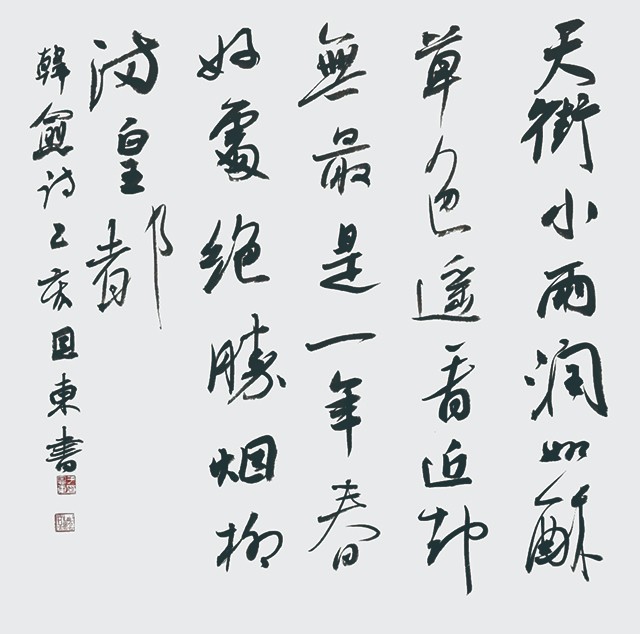 天街小雨润如酥
草色遥看近却
無最是一年春
好處绝勝烟柳
满皇都
韓愈诗乙亥東書